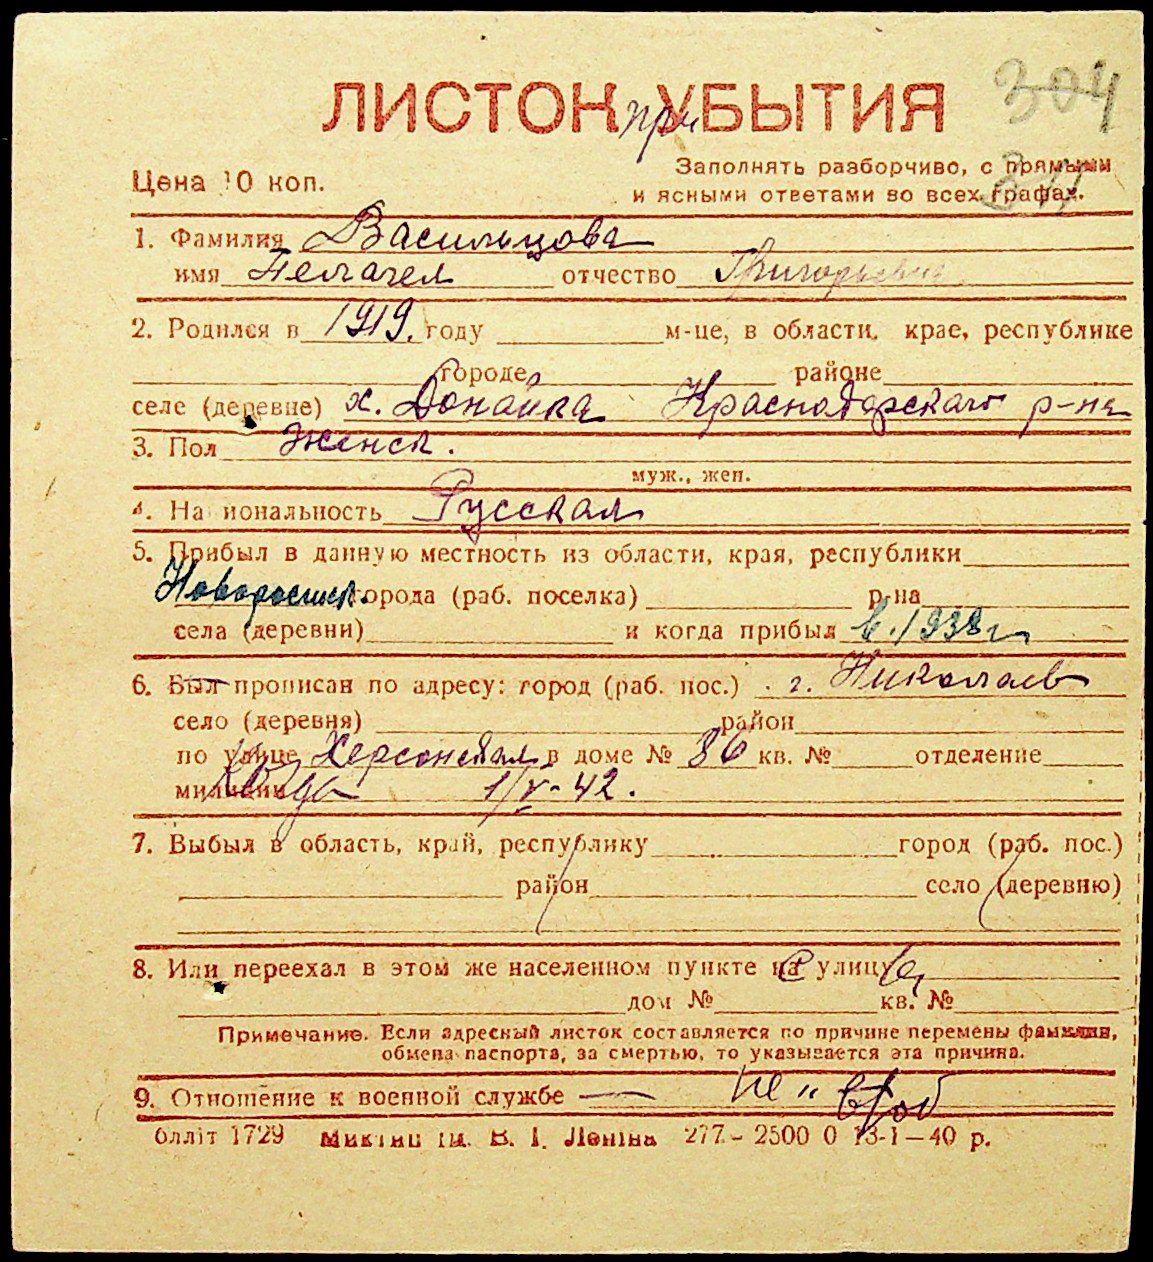 304
ЛИСТОК при УБЫТИЯ
Цена 10 коп.
Заполнять разборчиво, с прямыми
и ясными ответами во всех графах.
1. Фамилия Васильцова
имя отчество Григорьевна
2. Родился в 1919. году м-це, в области, крае, республике
городе районе
селе (деревне) х. Донайка Краснодарского р-на
3. Пол Женск.
муж., жен.
4. На иональность Русская
5. Прибыл в данную местность из области, края, республики
Новоросийск. города (раб. поселка) р-на
села (деревни) и когда прибыл в 1938 г
6. Был прописан по адресу: город (раб. пос.) г. Николаев
село (деревня) район
по улице Херсонская в доме № 36 кв. № отделение
милиции когда 1/V-42.
7. Выбыл в область, край, республику город (раб. пос.)
район село (деревню)
8. Или переехал в этом же населенном пункте на улицу
дом № кв. №
Примечание. Если адресный листок составляется по причине перемены фамилии,
обмена паспорта, за смертью, то указывается эта причина.
9. Отношение к военной службе — не
блліт 1729 ім. В. І. Леніна 277 - 2500 0 13-I-40 р.